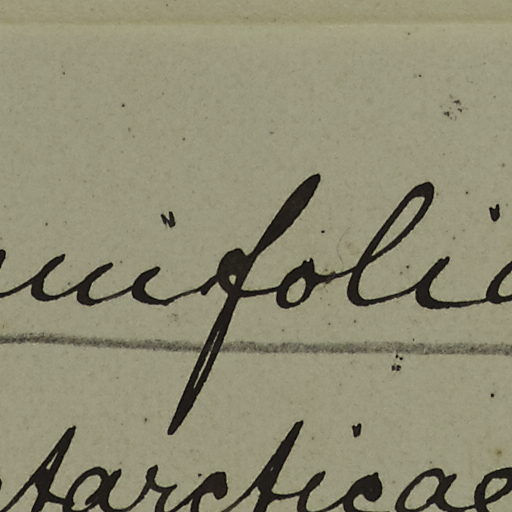 nuifolia
ntarcticae